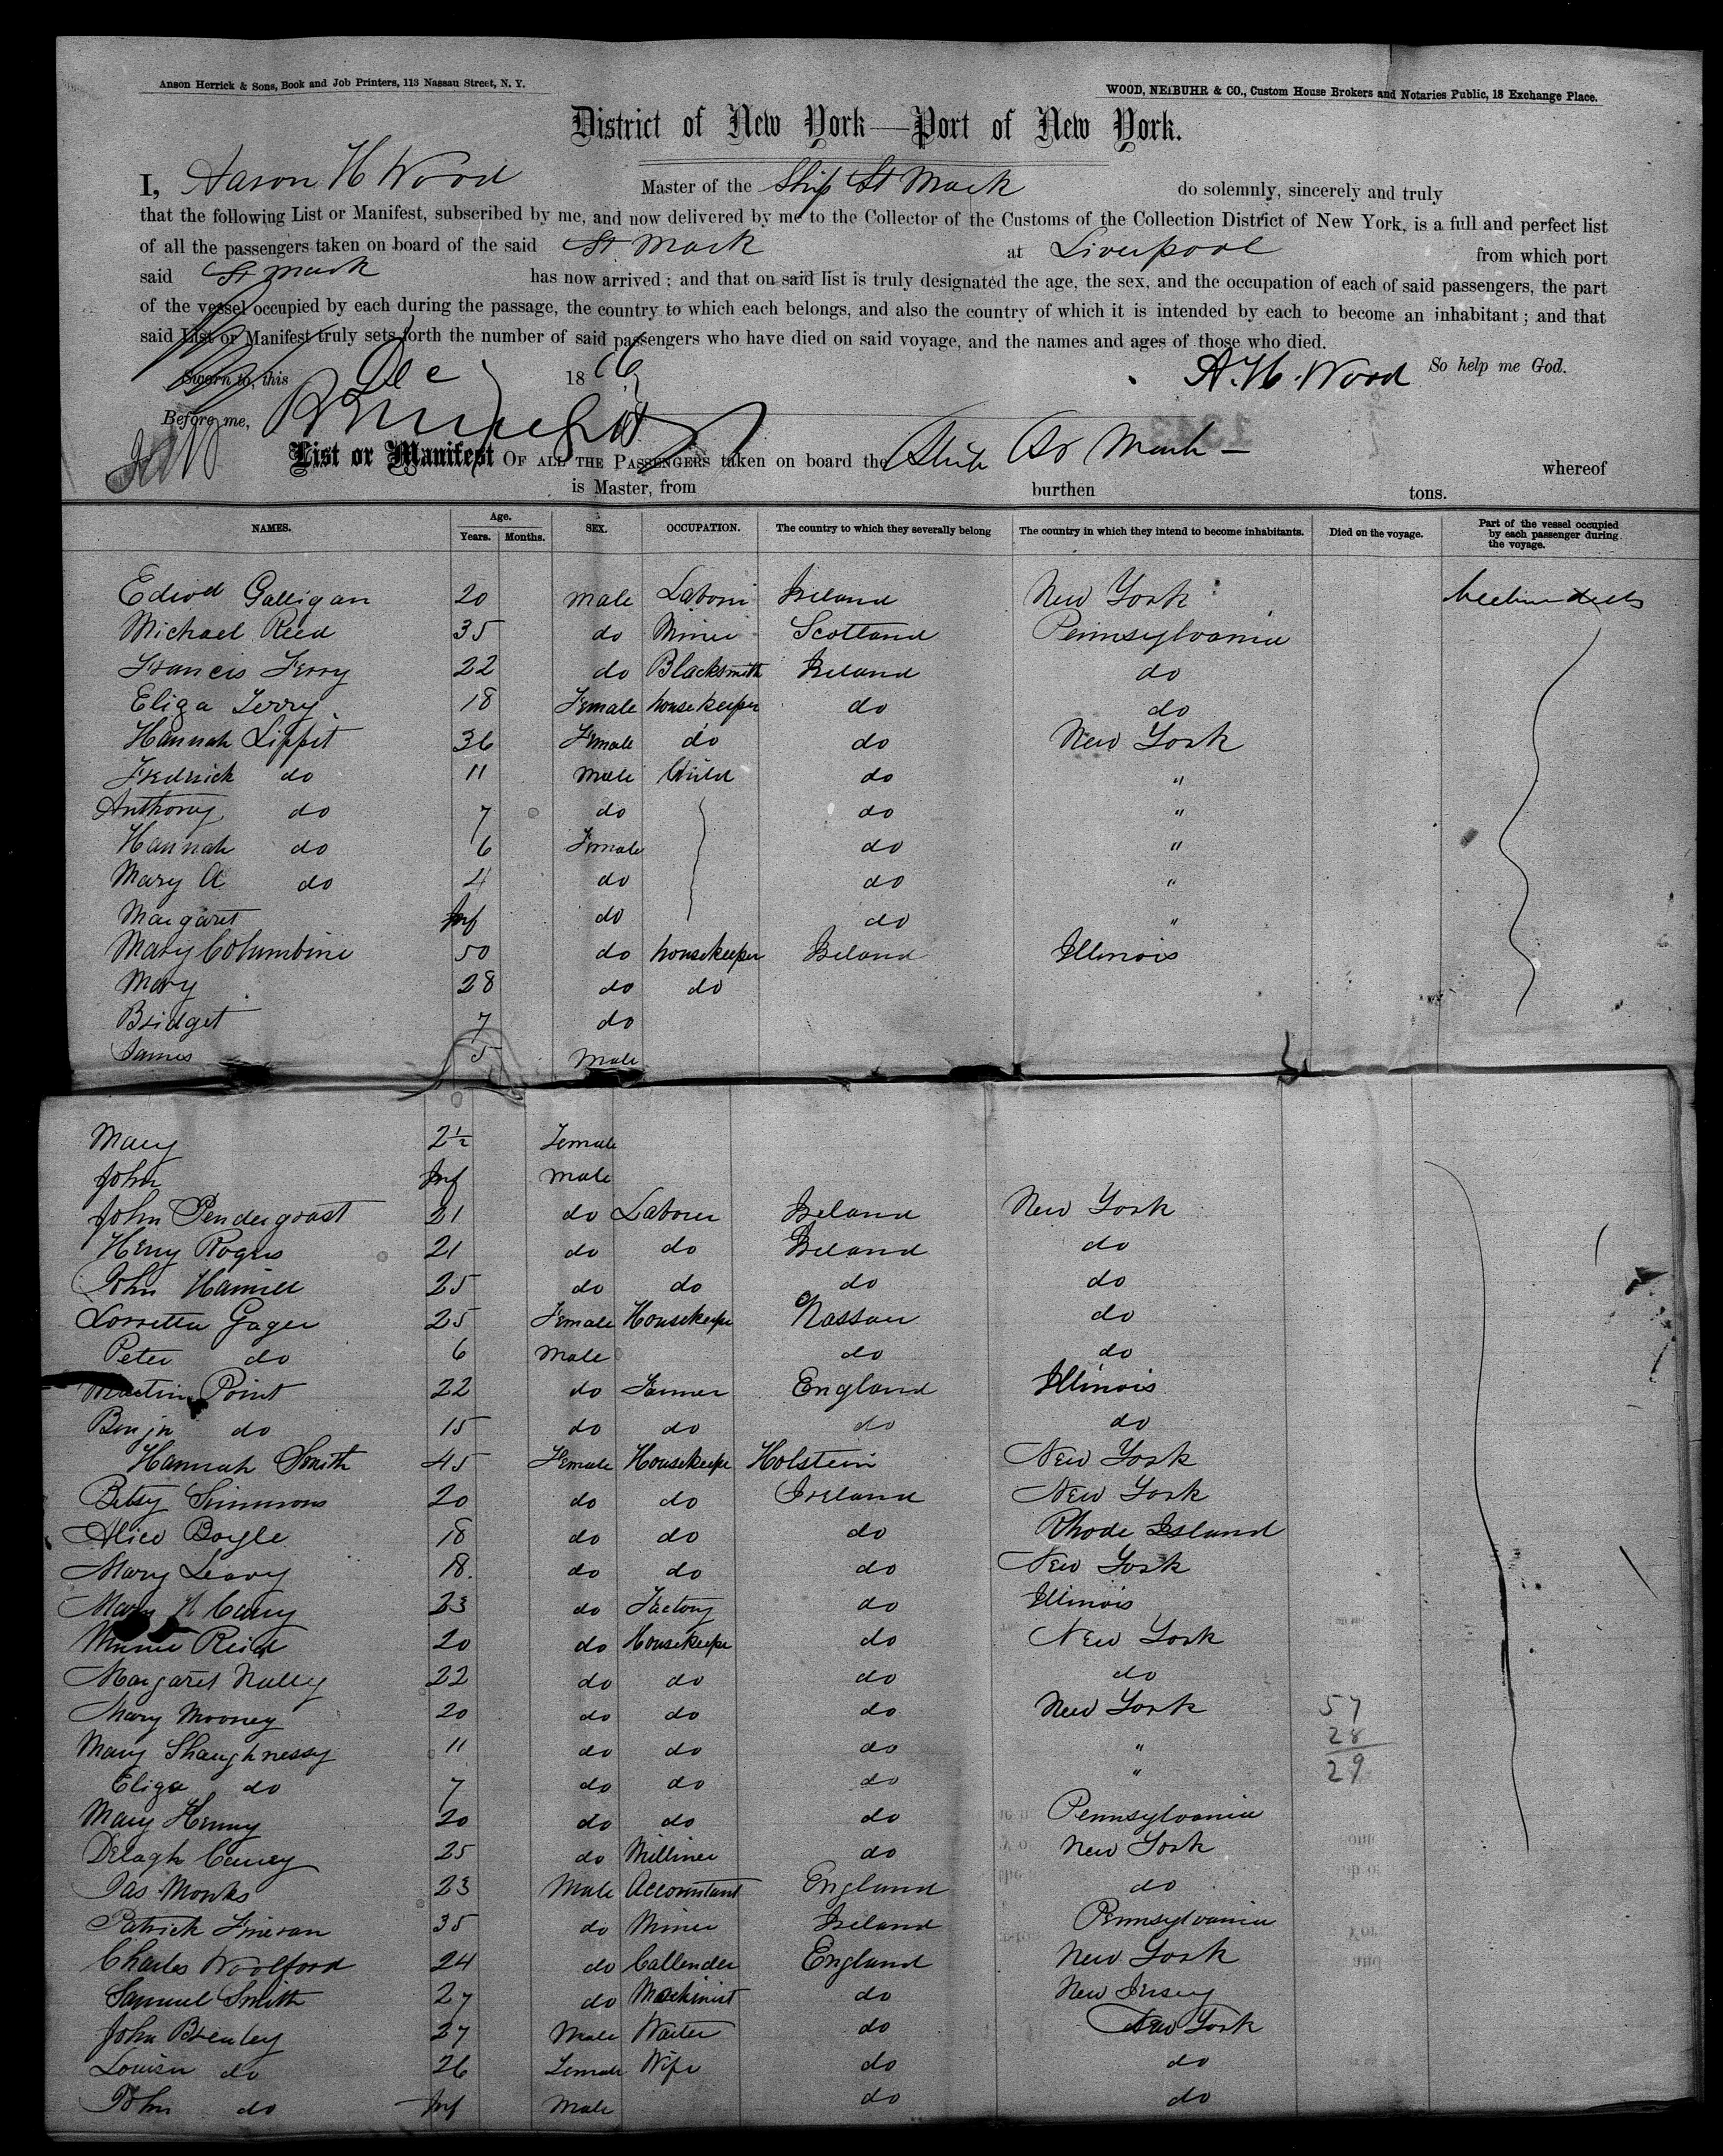 Anson Herrick & Sons, Book and Job Printers, 113 Nassau Street, N. Y.
WOOD, NEIBUHR & CO., Custom House Brokers and Notaries Public, 18 Exchange Place.
District of New York—Port of New York.
I, Aaron H Wood Master of the Ship St Mark do solemnly, sincerely and truly
that the following List or Manifest, subscribed by me, and now delivered by me to the Collector of the Customs of the Collection District of New York, is a full and perfect list
of all the passengers taken on board of the said St. Mark at Liverpool from which port
said St Mark has now arrived; and that on said list is truly designated the age, the sex, and the occupation of each of said passengers, the part
of the vessel occupied by each during the passage, the country to which each belongs, and also the country of which it is intended by each to become an inhabitant; and that
said List or Manifest truly sets forth the number of said passengers who have died on said voyage, and the names and ages of those who died.
Sworn to, this Dec 1866 A. H. Wood So help me God.
Before me,
List or Manifest OF ALL THE PASSENGERS taken on board the Ship St Mark — whereof
is Master, from burthen tons.
NAMES. Age. Years. Months. SEX. OCCUPATION. The country to which they severally belong The country in which they intend to become inhabitants. Died on the voyage. Part of the vessel occupied by each passenger during the voyage.
Edwd Galligan 20 male Ireland New York
Michael Reed 35 do Miner Scotland Pennsylvania
Francis Terry 22 do Blacksmith Ireland do
Eliza Terry 18 Female housekeeper do do
Hannah Lippit 36 Female do do New York
Fredrick do 11 male Child do "
Anthony do 7 do do "
Hannah do 6 Female do "
Mary A do 4 do do "
Margaret Inf do do "
Mary Columbine 50 do housekeeper Ireland Illinois
Mary 28 do do
Bridget 7 do
James 5 Male
Mary 2½ Female
John Inf male
John Pendergrast 21 do Laborer Ireland New York
Henry Rogers 21 do do Ireland do
John Hamill 25 do do do do
Lorretta Gager 25 Female Housekeeper Nassau do
Peter do 6 Male do do
Martin Point 22 do Farmer England Illinois
Benjn do 15 do do do do
Hannah Smith 45 Female Housekeeper Holstein New York
Betsy Simmons 20 do do Ireland New York
Alice Boyle 18 do do do Rhode Island
Mary Leavy 18. do do do New York
Mary 23 do Factory do Illinois
Reid 20 do Housekeeper do New York
Margaret Nully 22 do do do do
Mary Mooney 20 do do do New York 57
Mary Shaughnessy 11 do do do " 28
Eliza do 7 do do do " 29
Mary Henny 20 do do do Pennsylvania
25 do Milliner do New York
Jas Monks 23 Male Accountant England do
Patrick Fineran 35 do Miner Ireland Pennsylvania
Charles Woolford 24 do Callender England New York
Samuel Smith 27 do Machinist do New Jersey
John Brearley 27 Male Waiter do New York
Louisa do 26 Female Wife do do
John do Inf Male do do